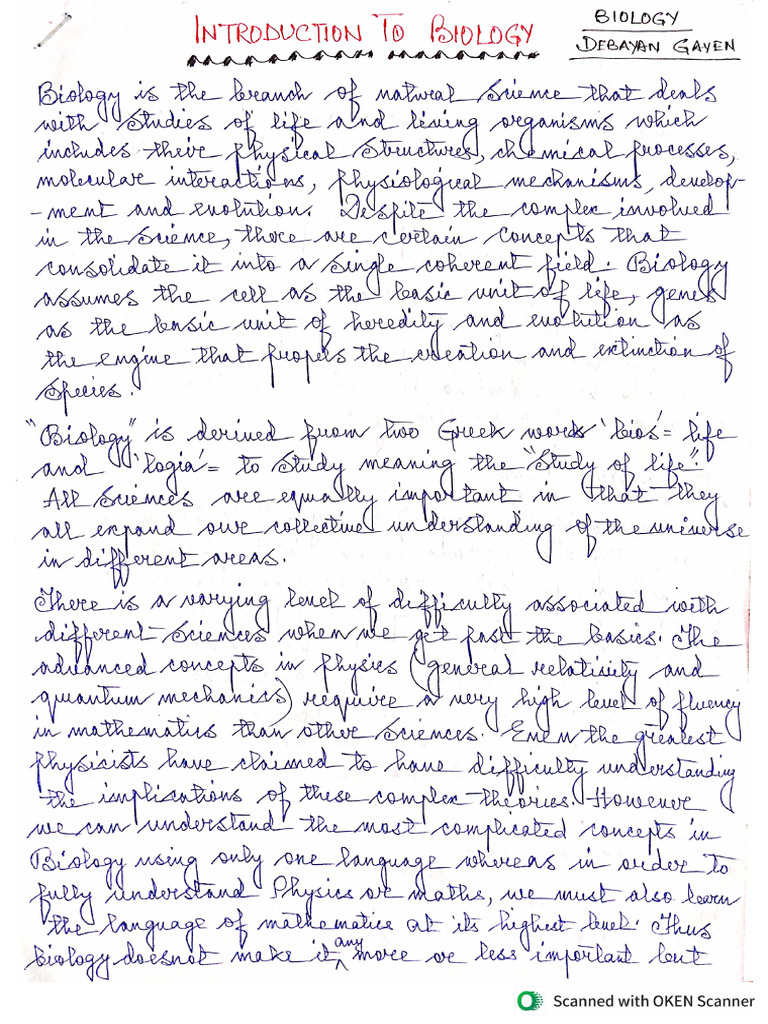 INTRODUCTION TO BIOLOGY
BIOLOGY
DEBAYAN GAYEN
Biology is the branch of natural Science that deals
with Studies of life and living organisms which
includes their physical Structures, chemical processes,
molecular interactions, physiological mechanisms, develop-
-ment and evolution. Despite the complex involved
in the Science, there are certain concepts that
consolidate it into a single coherent field. Biology
assumes the cell as the basic unit of life, genes
as the basic unit of heredity and evolution as
the engine that propels the creation and extinction of
Species.
"Biology" is derived from two Greek words 'bios' = life
and 'logia' = to Study meaning the "Study of life".
All Sciences are equally important in that they
all expand our collective understanding of the universe
in different areas.
There is a varying level of difficulty associated with
different Sciences when we get past the basics. The
advanced concepts in physics (general relativity and
quantum mechanics) require a very high level of fluency
in mathematics than other Sciences. Even the greatest
physicists have claimed to have difficulty understanding
the implications of these complex theories. However
we can understand the most complicated concepts in
Biology using only one language whereas in order to
fully understand Physics or maths, we must also learn
the language of mathematics at its highest level. Thus
biology doesnot make it any more or less important but
Scanned with OKEN Scanner